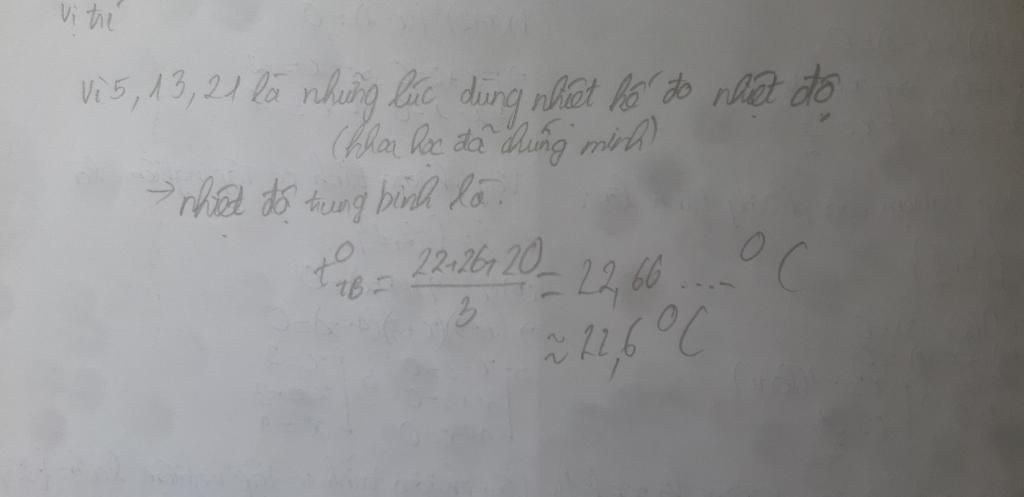 vị trí
Vì 5, 13, 21 là những lúc dùng nhiệt kế đo nhiệt độ
(khoa học đã chứng minh)
→ nhiệt độ trung bình là:
t⁰TB = (22+26+20)/3 = 22,66 .... ⁰C
≈ 22,6 ⁰C